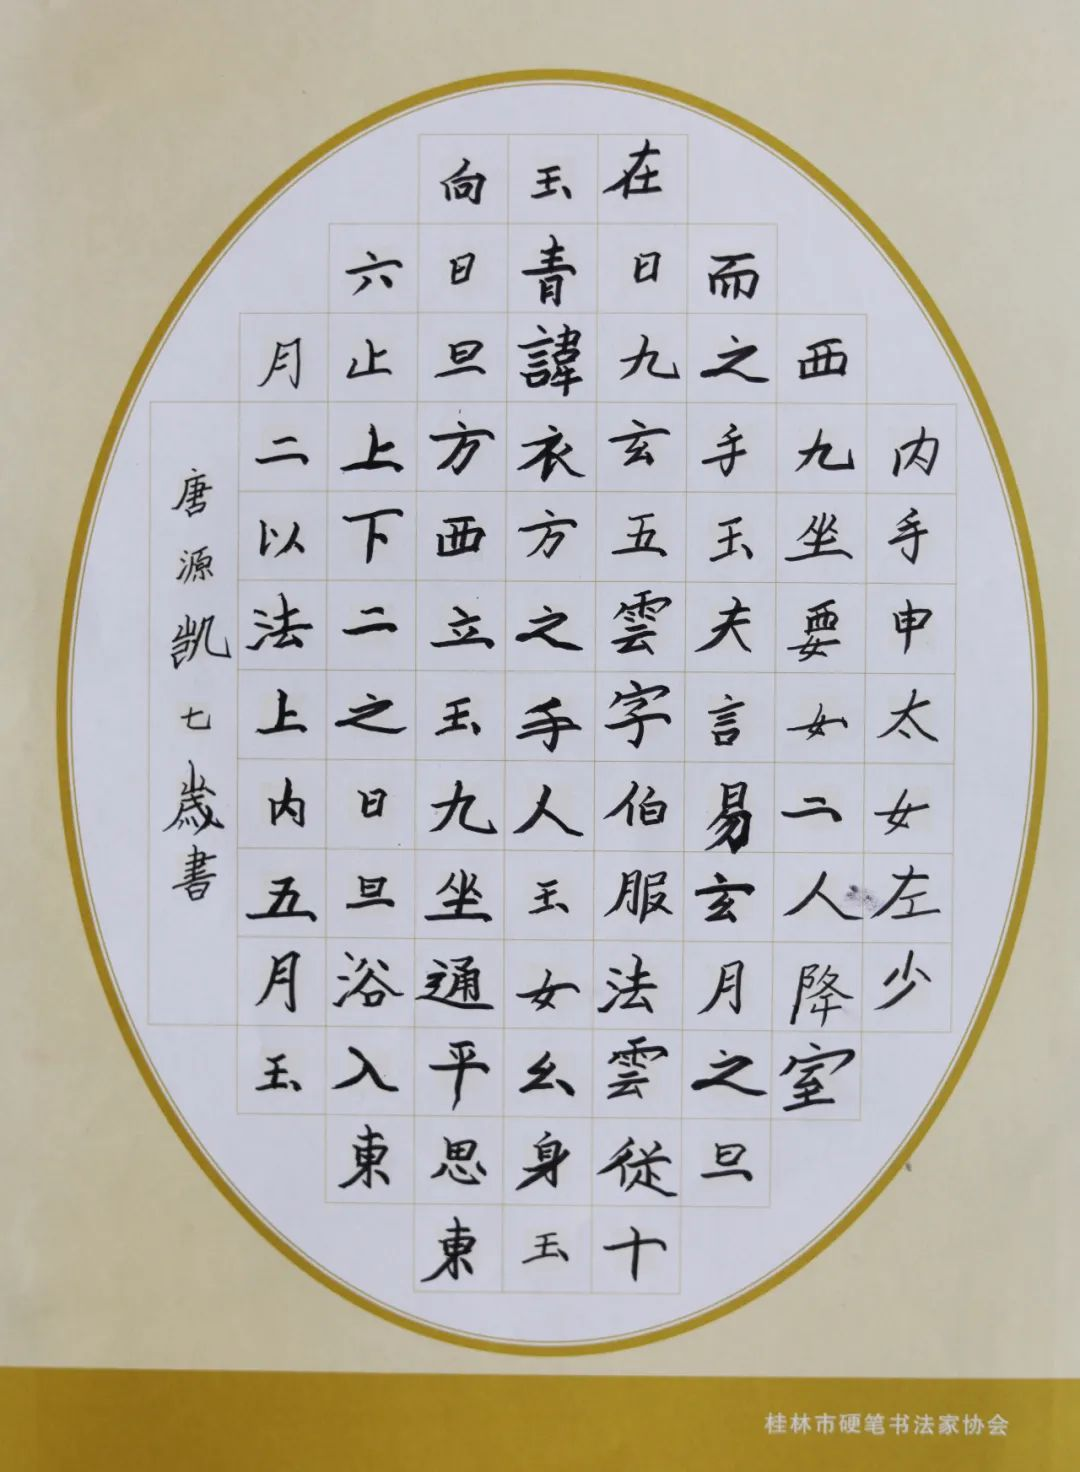 内手申太女左少
西九坐要女二人降室
而之手玉夫言易玄月之旦
在日九玄五雲字伯服法雲從十
玉青諱衣方之手人玉女幺身玉
向日旦方西立玉九坐通平思東
六止上下二之日旦浴入東
月二以法上内五月玉
唐源凯七歲書
桂林市硬笔书法家协会